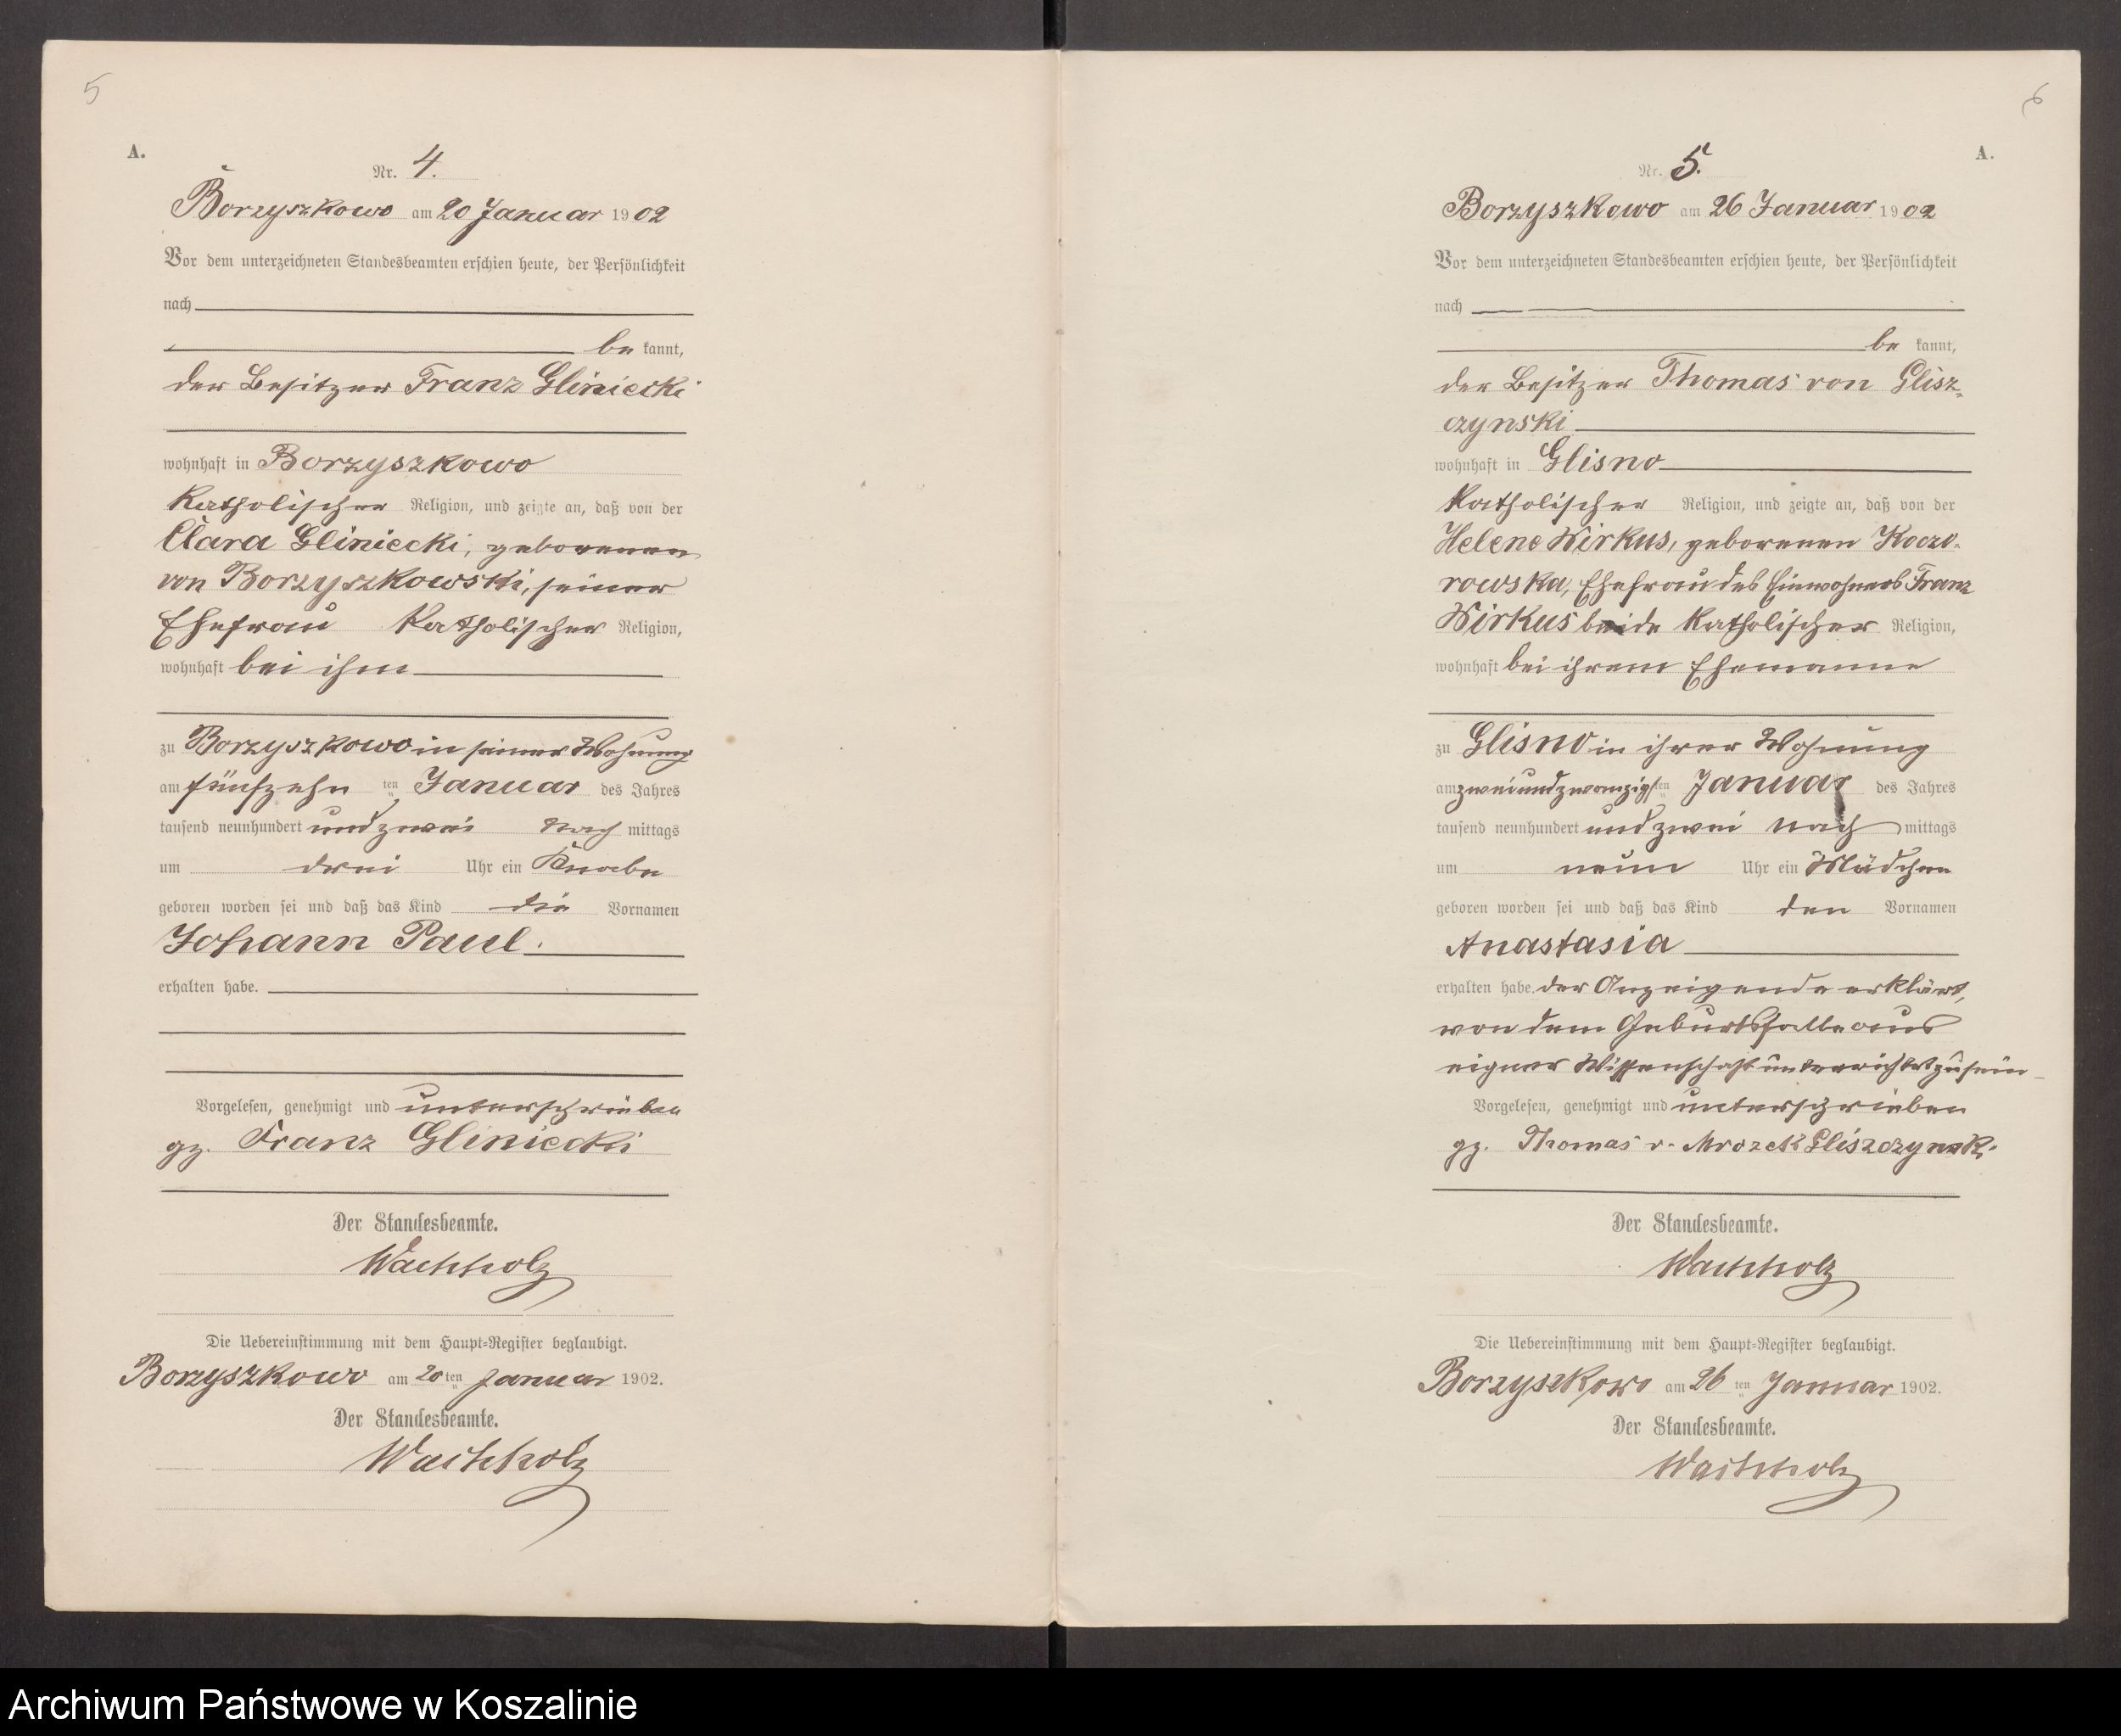 5
A.
Nr. 4.
Borzyszkowo am 20 Januar 1902
Vor dem unterzeichneten Standesbeamten erschien heute, der Persönlichkeit
nach
be kannt,
der Besitzer Franz Gliniecki
wohnhaft in Borzyszkowo
katholischer Religion, und zeigte an, daß von der
Clara Gliniecki, geborenen
von Borzyszkowski, seiner
Ehefrau katholischer Religion,
wohnhaft bei ihm
zu Borzyszkowo in seiner Wohnung
am fünfzehn ten Januar des Jahres
tausend neunhundert und zwei Nach mittags
um drei Uhr ein Knabe
geboren worden sei und daß das Kind die Vornamen
Johann Paul.
erhalten habe.
Vorgelesen, genehmigt und unterschrieben
gz. Franz Gliniecki
Der Standesbeamte.
Wachholz
Die Uebereinstimmung mit dem Haupt=Register beglaubigt.
Borzyszkowo am 20 ten Januar 1902.
Der Standesbeamte.
Wachholz
6
A.
Nr. 5.
Borzyszkowo am 26 Januar 1902
Vor dem unterzeichneten Standesbeamten erschien heute, der Persönlichkeit
nach
be kannt,
der Besitzer Thomas von Glisz=
czynski
wohnhaft in Glisno
katholischer Religion, und zeigte an, daß von der
Helene Wirkus, geborenen Koczo=
rowska, Ehefrau des Einwohners Franz
Wirkus beide katholischer Religion,
wohnhaft bei ihrem Ehemanne
zu Glisno in ihrer Wohnung
am zweiundzwanzigsten Januar des Jahres
tausend neunhundert und zwei nach mittags
um neun Uhr ein Mädchen
geboren worden sei und daß das Kind den Vornamen
Anastasia
erhalten habe. der Anzeigende erklärt,
von dem Geburtsfalle aus
eigner Wissenschaft unterrichtet zu sein
Vorgelesen, genehmigt und unterschrieben
gz. Thomas v. Mrozek Gliszczynski
Der Standesbeamte.
Wachholz
Die Uebereinstimmung mit dem Haupt=Register beglaubigt.
Borzyszkowo am 26 ten Januar 1902.
Der Standesbeamte.
Wachholz
Archiwum Państwowe w Koszalinie